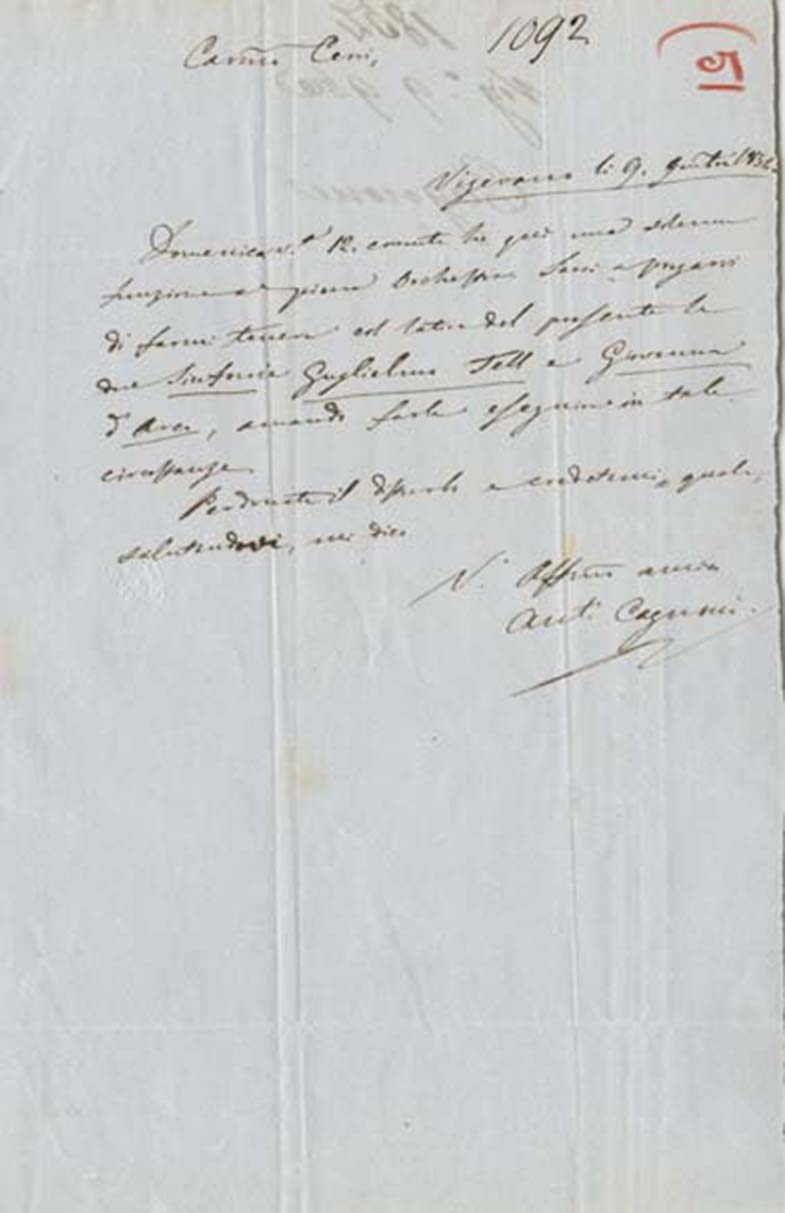 1092
5
Car.mo Ceni,
Vigevano li 9.
Domenica 12. corrente ho qui una solenne
funzione a piena Orchestra. Sono a pregarvi
di farmi tenere col latore del presente le
due Sinfonie Guglielmo Tell e Giovanna
d'Arco, amando farle eseguire in tale
circostanza.
Perdonate il disturbo e credetemi, quale,
salutandovi, mi dico
V. Aff.mo amico
Ant. Cagnoni.